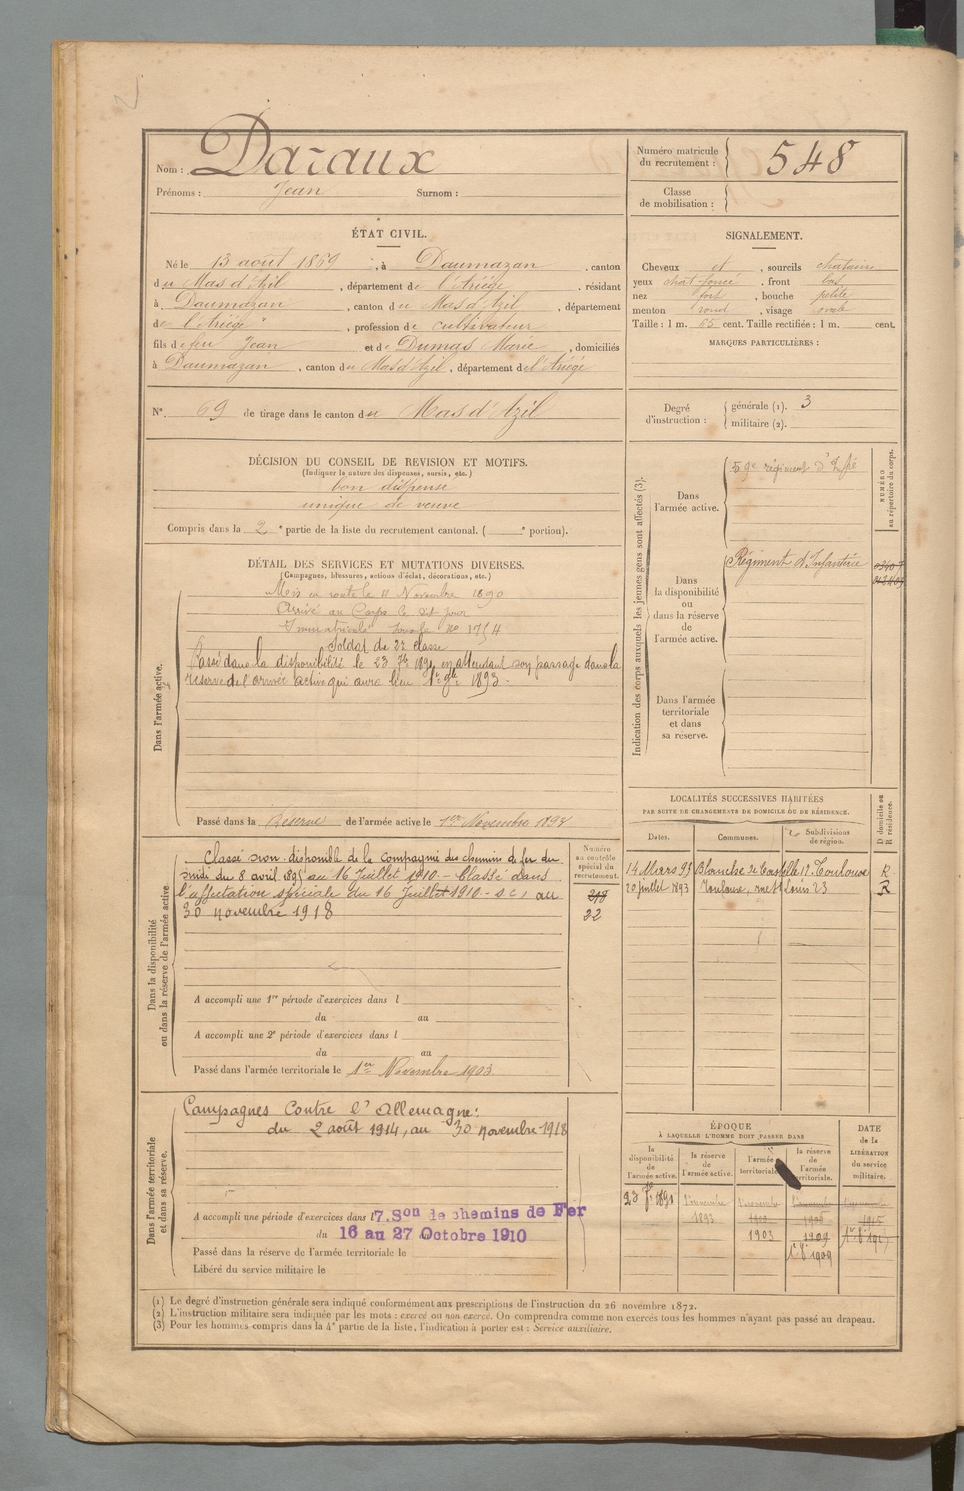 Nom : Daraux
Prénoms : Jean Surnom :
Numéro matricule du recrutement : 548
Classe de mobilisation :
ÉTAT CIVIL.
Né le 13 août 1869, à Daumazan, canton
du Mas d'Azil, département de l'Ariège, résidant
à Daumazan, canton du Mas d'Azil, département
de l'Ariège, profession de cultivateur
fils de feu Jean et de Dumas Marie, domiciliés
à Daumazan, canton du Mas d'Azil, département de l'Ariège
N° 69 de tirage dans le canton du Mas d'Azil
SIGNALEMENT.
Cheveux et, sourcils chatains
yeux chat foncé, front bas
nez fort, bouche petite
menton rond, visage ovale
Taille : 1 m. 65 cent. Taille rectifiée : 1 m. cent.
MARQUES PARTICULIÈRES :
Degré d'instruction : générale (1). 3
militaire (2).
DÉCISION DU CONSEIL DE REVISION ET MOTIFS.
(Indiquer la nature des dispenses, sursis, etc.)
bon dispense
unique de veuve
Compris dans la 2e partie de la liste du recrutement cantonal. ( e portion).
DÉTAIL DES SERVICES ET MUTATIONS DIVERSES.
(Campagnes, blessures, actions d'éclat, décorations, etc.)
Dans l'armée active.
Mis en route le 11 Novembre 1890
Arrivé au Corps le dit jour
Immatriculé sous le no 1754
Soldat de 2e classe
Passé dans la disponibilité le 23 7bre 1891 en attendant son passage dans la
réserve de l'armée active qui aura lieu 1er 9bre 1893.
Passé dans la Réserve de l'armée active le 1er Novembre 1893
Indication des corps auxquels les jeunes gens sont affectés (3).
Dans l'armée active.
59e régiment d'Infie
NUMÉRO au répertoire du corps.
Dans la disponibilité ou dans la réserve de l'armée active.
Régiment d'Infanterie
Dans l'armée territoriale et dans sa réserve.
Dans la disponibilité ou dans la réserve de l'armée active.
Classé non-disponible de la compagnie des chemins de fer du
midi du 8 avril 1895 au 16 Juillet 1910 - Classé dans
l'affectation spéciale du 16 Juillet 1910 - s.c, au
30 novembre 1918
Numéro au contrôle spécial du recrutement.
22
A accompli une 1re période d'exercices dans l
du au
A accompli une 2e période d'exercices dans l
du au
Passé dans l'armée territoriale le 1er Novembre 1903
LOCALITÉS SUCCESSIVES HABITÉES
PAR SUITE DE CHANGEMENTS DE DOMICILE OU DE RÉSIDENCE.
Dates. Communes. Subdivisions de région. D domicile ou R résidence.
14 Mars 95 Blanche de Castille 12 Toulouse R
20 juillet 1893 Toulouse, rue St Louis 23 R
Dans l'armée territoriale et dans sa réserve.
Campagnes Contre l'Allemagne :
du 2 août 1914, au 30 novembre 1918
A accompli une période d'exercices dans l 7. Son de chemins de Fer
du 16 au 27 Octobre 1910
Passé dans la réserve de l'armée territoriale le
Libéré du service militaire le
ÉPOQUE
À LAQUELLE L'HOMME DOIT PASSER DANS
la disponibilité de l'armée active. la réserve de l'armée active. l'armée territoriale. la réserve de l'armée territoriale. DATE de la LIBÉRATION du service militaire.
23 7bre 1891 1 novembre 1893 1 novembre
1903 1909
1915
1er 8bre 1909
(1) Le degré d'instruction générale sera indiqué conformément aux prescriptions de l'instruction du 26 novembre 1872.
(2) L'instruction militaire sera indiquée par les mots : exercé ou non exercé. On comprendra comme non exercés tous les hommes n'ayant pas passé au drapeau.
(3) Pour les hommes compris dans la 4e partie de la liste, l'indication à porter est : Service auxiliaire.